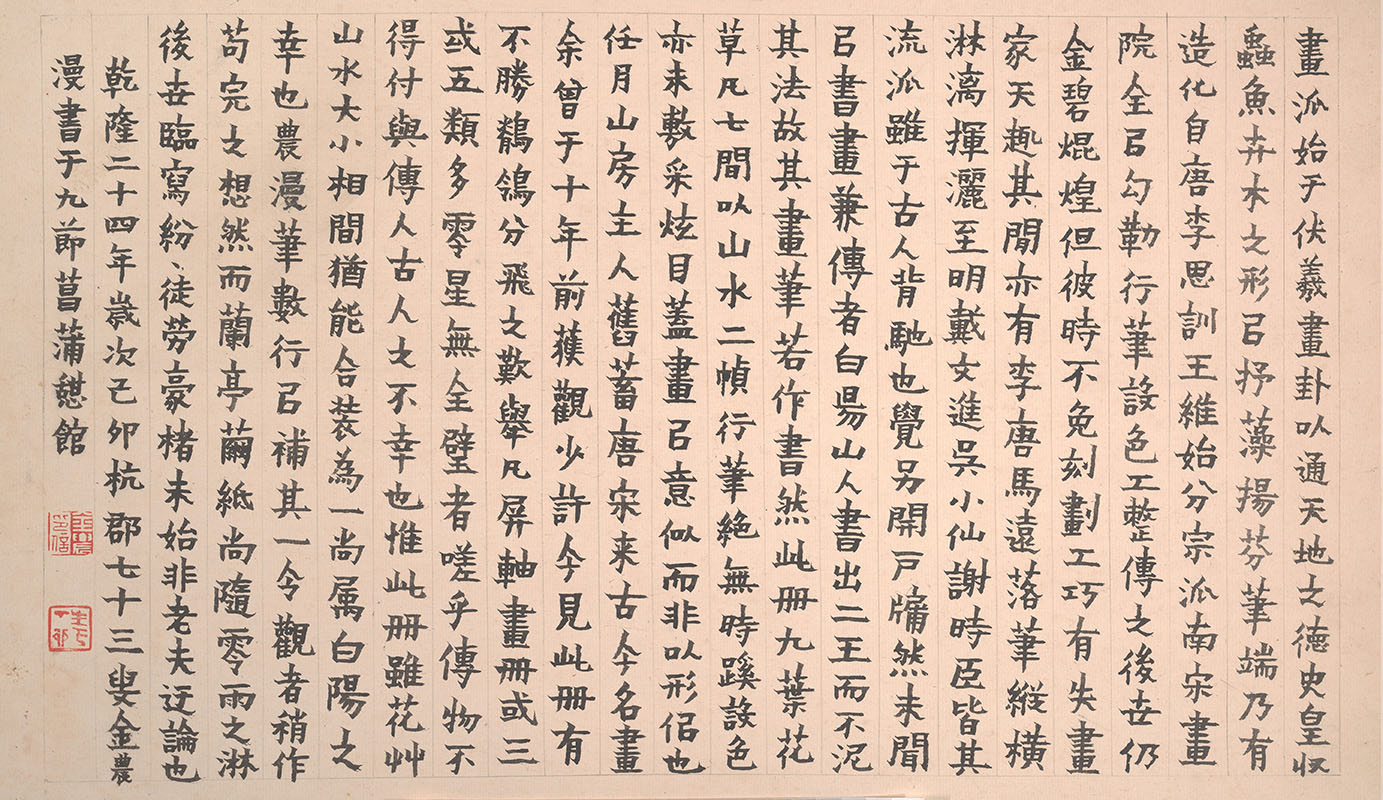 畫派始于伏羲畫卦以通天地之德史皇收
蟲魚卉木之形㠯抒藻揚芬筆端乃有
造化自唐李思訓王維始分宗派南宋畫
院全㠯勾勒行筆設色工整傳之後世仍
金碧焜煌但彼時不免刻劃工巧有失畫
家天趣其閒亦有李唐馬遠落筆縱橫
淋漓揮灑至明戴文進吳小仙謝時臣皆其
流派雖于古人背馳也覺另開戸牗然未聞
㠯書畫兼傳者白昜山人書出二王而不泥
其法故其畫筆若作書然此冊九葉花
草凡七間以山水二幀行筆絕無時蹊設色
亦未敷采炫目蓋畫㠯意似而非以形侣也
任月山房主人舊畜唐宋来古今名畫
余曾于十年前獲觀少許今見此冊有
不勝鶺鴒分飛之歎舉凡屏軸畫冊或三
或五類多零星無全璧者嗟乎傳物不
得付與傳人古人之不幸也惟此冊雖花艸
山水大小相間猶能合装為一尚属白陽之
幸也農漫筆數行㠯補其一令觀者稍作
苟完之想然而蘭亭繭紙尚隨零雨之淋
後世臨寫紛〻徒劳豪楮未始非老夫迂論也
乾隆二十四年歲次己卯杭郡七十三叟金農
漫書于九節菖蒲憇館